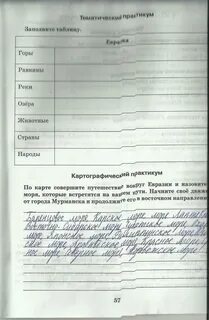 Тематический практикум
Заполните таблицу.
Евразия
Горы
Равнины
Реки
Озёра
Животные
Страны
Народы
Картографический практикум
По карте совершите путешествие вокруг Евразии и назовите
моря, которые встретятся на вашем пути. Начните своё движение
от города Мурманска и продолжите его в восточном направлении.
Баренцово море Карское море море Лаптевых
Восточно-Сибирское море Чукотское море
море Японское море
море Аравийское море Красное
море Северное море Норвежское море
57